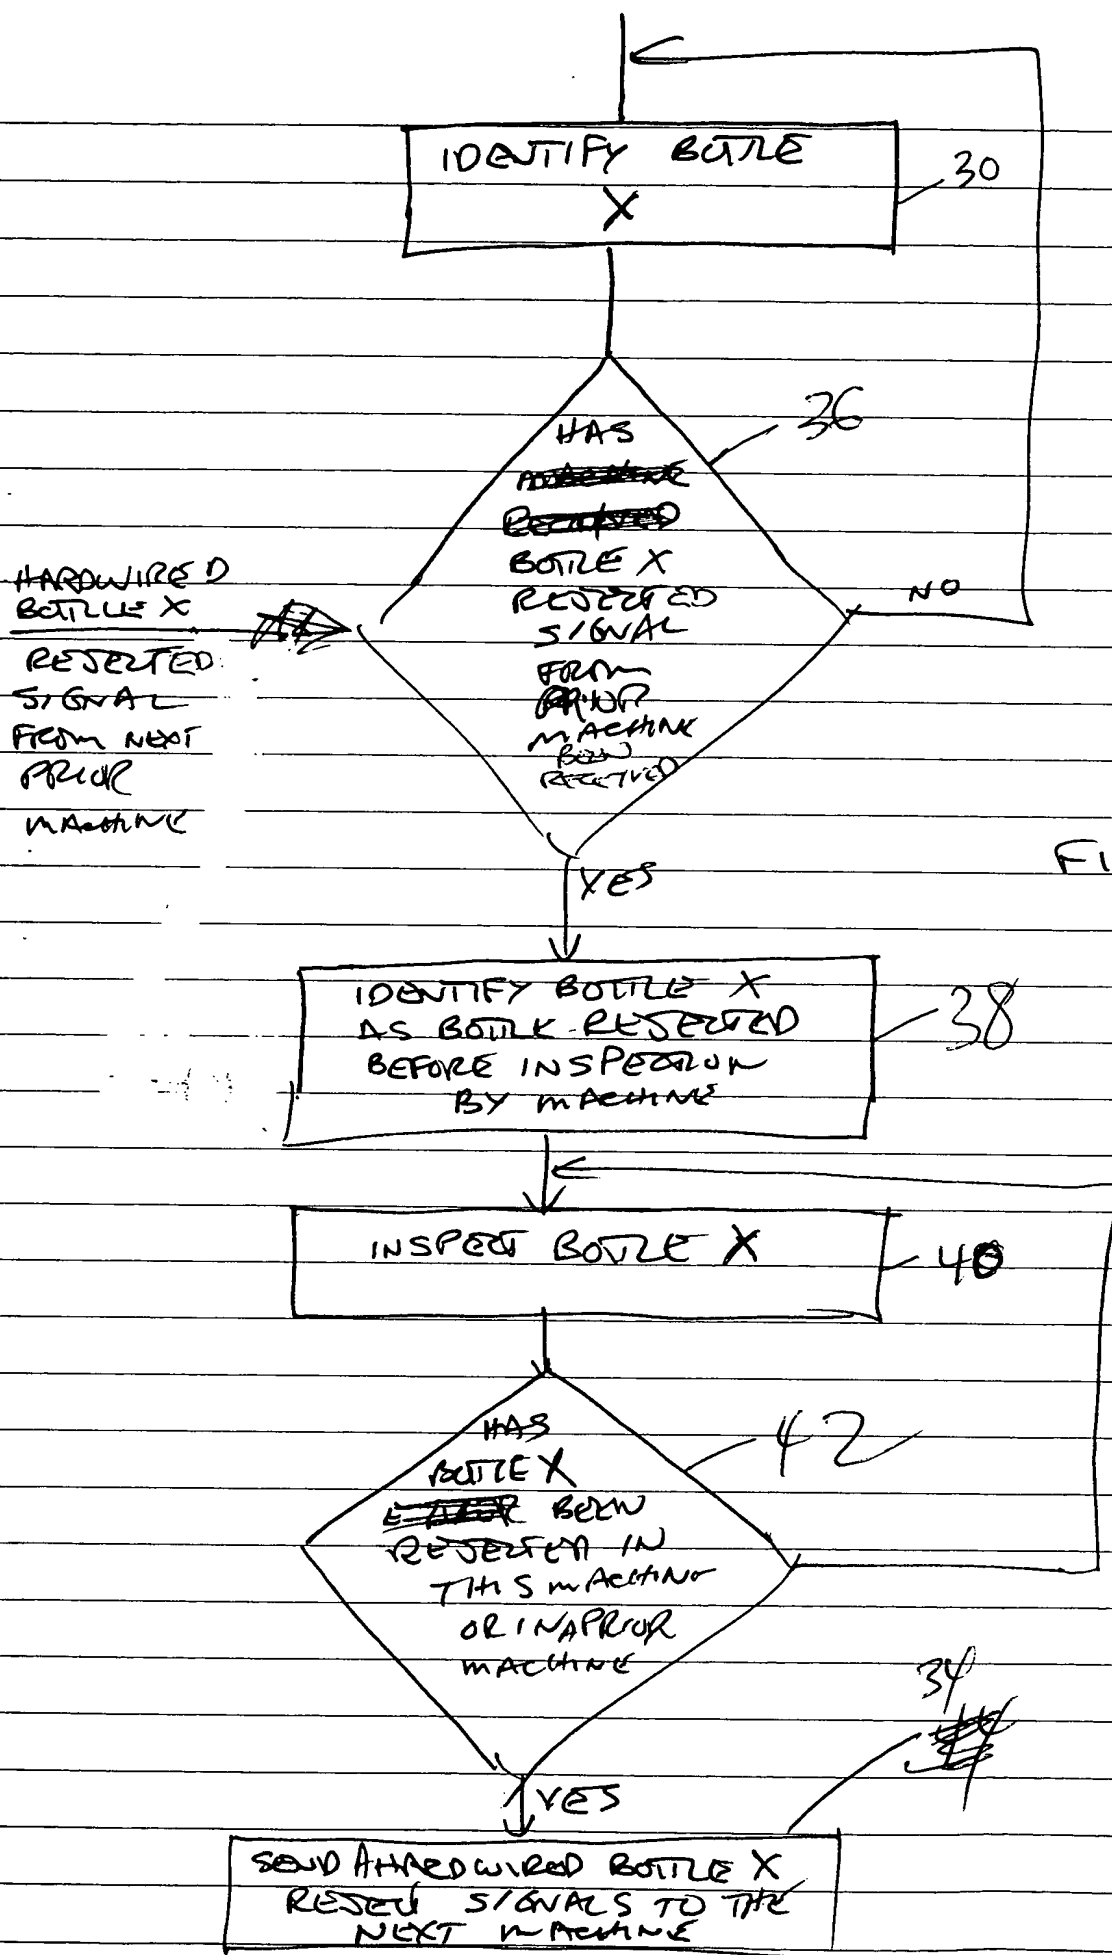 IDENTIFY BOTTLE
X
30
36
HAS
BOTTLE X
REJECTED
SIGNAL
FROM
PRIOR
MACHINE
BEEN
RECEIVED
NO
HARDWIRED
BOTTLE X
REJECTED
SIGNAL
FROM NEXT
PRIOR
MACHINE
YES
FI
IDENTIFY BOTTLE X
AS BOTTLE REJECTED
BEFORE INSPECTION
BY MACHINE
38
INSPECT BOTTLE X
40
HAS
BOTTLE X
BEEN
REJECTED IN
THIS MACHINE
OR IN A PRIOR
MACHINE
42
YES
34
SEND A HARDWIRED BOTTLE X
REJECT SIGNALS TO THE
NEXT MACHINE